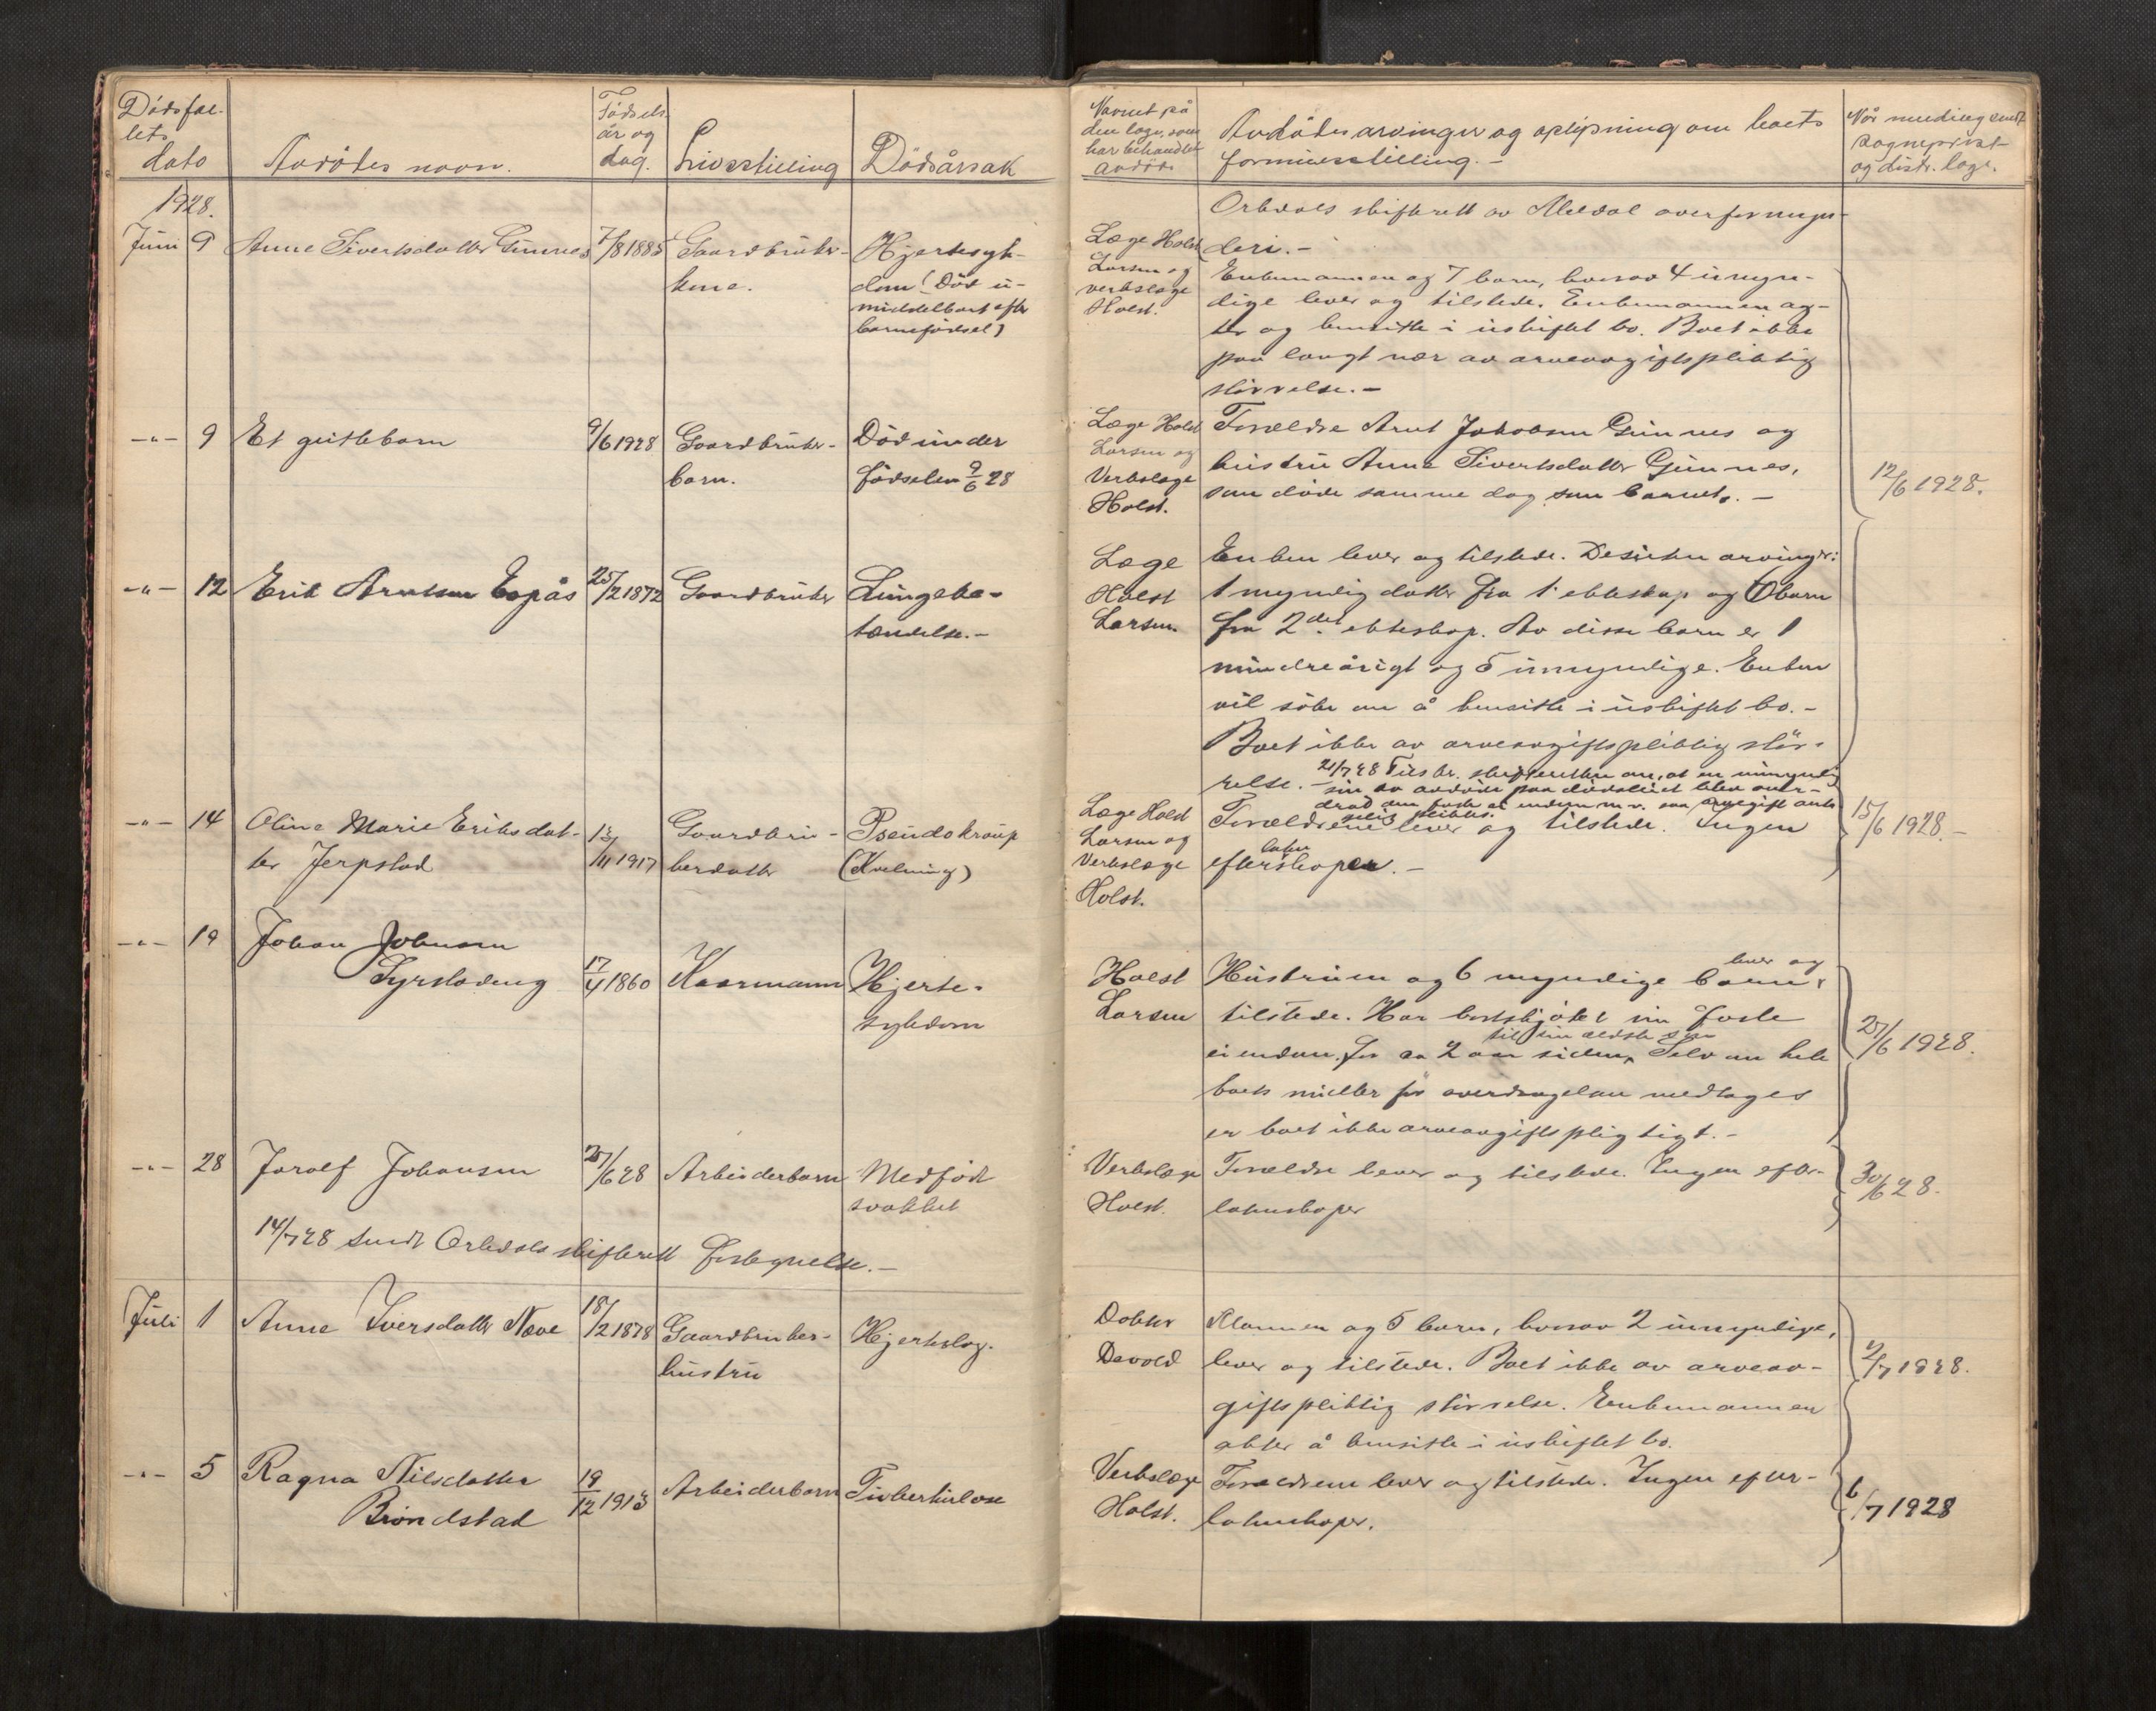 Dödsfal-
lets
dato
Avdötes navn.
Fødsels
år og
dag.
Livsstilling
Dödsårsak
Navnet på
den læge, som
har behandlet
avdöde
Avdötes arvinger og oplysning om boets
formuesstilling. -
Når melding sendt
sogneprest
og distr. læge.
1928.
Orkdals skifterett av Meldal overformyn-
deri. -
Juni 9 Anne Sivertsdatter Gunnes 7/8 1885 Gaardbruker-
kone.
Hjertesyk-
dom (Död u-
middelbart efter
barnefödsel)
Læge Holst
Larsen og
verkslæge
Holst.
Enkemannen og 7 barn, hvorav 4 umyn-
dige lever og tilstede. Enkemannen ag-
ter og hensitte i uskiftet bo. Boet ikke
paa langt nær av arveavgiftspliktig
störrelse. -
-"- 9 Et guttebarn 9/6 1928 Gaardbruker-
barn.
Död under
födselen 9/6 28
Læge Holst
Larsen og
Verkslæge
Holst.
Forældre Arnt Jakobsen Gunnes og
hustru Anne Sivertsdatter Gunnes,
som döde samme dag som barnet. -
12/6 1928.
-"- 12 Erik Arntsen Espås 25/2 1872 Gaardbruker Lungebe-
tændelse. -
Læge
Holst
Larsen.
Enken lever og tilstede. Desuten arvinger:
1 myndig datter fra 1. ekteskap og 6 barn
fra 2det ekteskap. Av disse barn er 1
mindreårigt og 5 umyndige. Enken
vil söke om å hensitte i uskiftet bo. -
Boet ikke av arveavgiftspliktig stör-
relse. - 21/7 28 Tilskr. skifteretten om, at en umyndig
sön av avdöde paa dödsleiet blev over-
drad den faste eiendom m.v. saa arvegift antagelig pliktes.
-"- 14 Oline Marie Eriksdat-
ter Jerpstad
13/11 1917
Gaardbru-
kerdatter
Pseudokroup
(Kvelning)
Læge Holst
Larsen og
Verkslæge
Holst.
Forældrene lever og tilstede. Ingen
efterlatenskaper. -
15/6 1928. -
-"- 19 Johan Johnsen
Syrstadeng
17/4 1860 Kaarmann Hjerte-
sykdom
Holst
Larsen
Hustruen og 6 myndige barn lever og
tilstede. Har bortskjötet sin faste
eiendom for ca 2 aar siden til sin ældste sön. Selv om hele
boets midler för overdragelsen medtages
er boet ikke arveavgiftspligtigt. -
25/6 1928.
-"- 28 Jorolf Johansen 25/6 28 Arbeiderbarn Medfödt
svakhet
Verkslæge
Holst.
Forældre lever og tilstede. Ingen efter-
latenskaper
30/6 28.
14/7 28 sendt Orkdals skifterett fortegnelse. -
Juli 1 Anne Iversdatter Næve 18/2 1878 Gaardbruker-
hustru
Hjerteslag.
Doktor
Devold
Mannen og 5 barn, hvorav 2 umyndige,
lever og tilstede. Boet ikke av arveav-
giftspliktig störrelse. Enkemannen
akter å hensitte i uskiftet bo.
2/7 1928.
-"- 5 Ragna Nilsdatter
Bröndstad
19/12 1913 Arbeiderbarn Tuberkulose
Verkslæge
Holst.
Foreldrene lever og tilstede. Ingen efter-
latenskaper.
6/7 1928